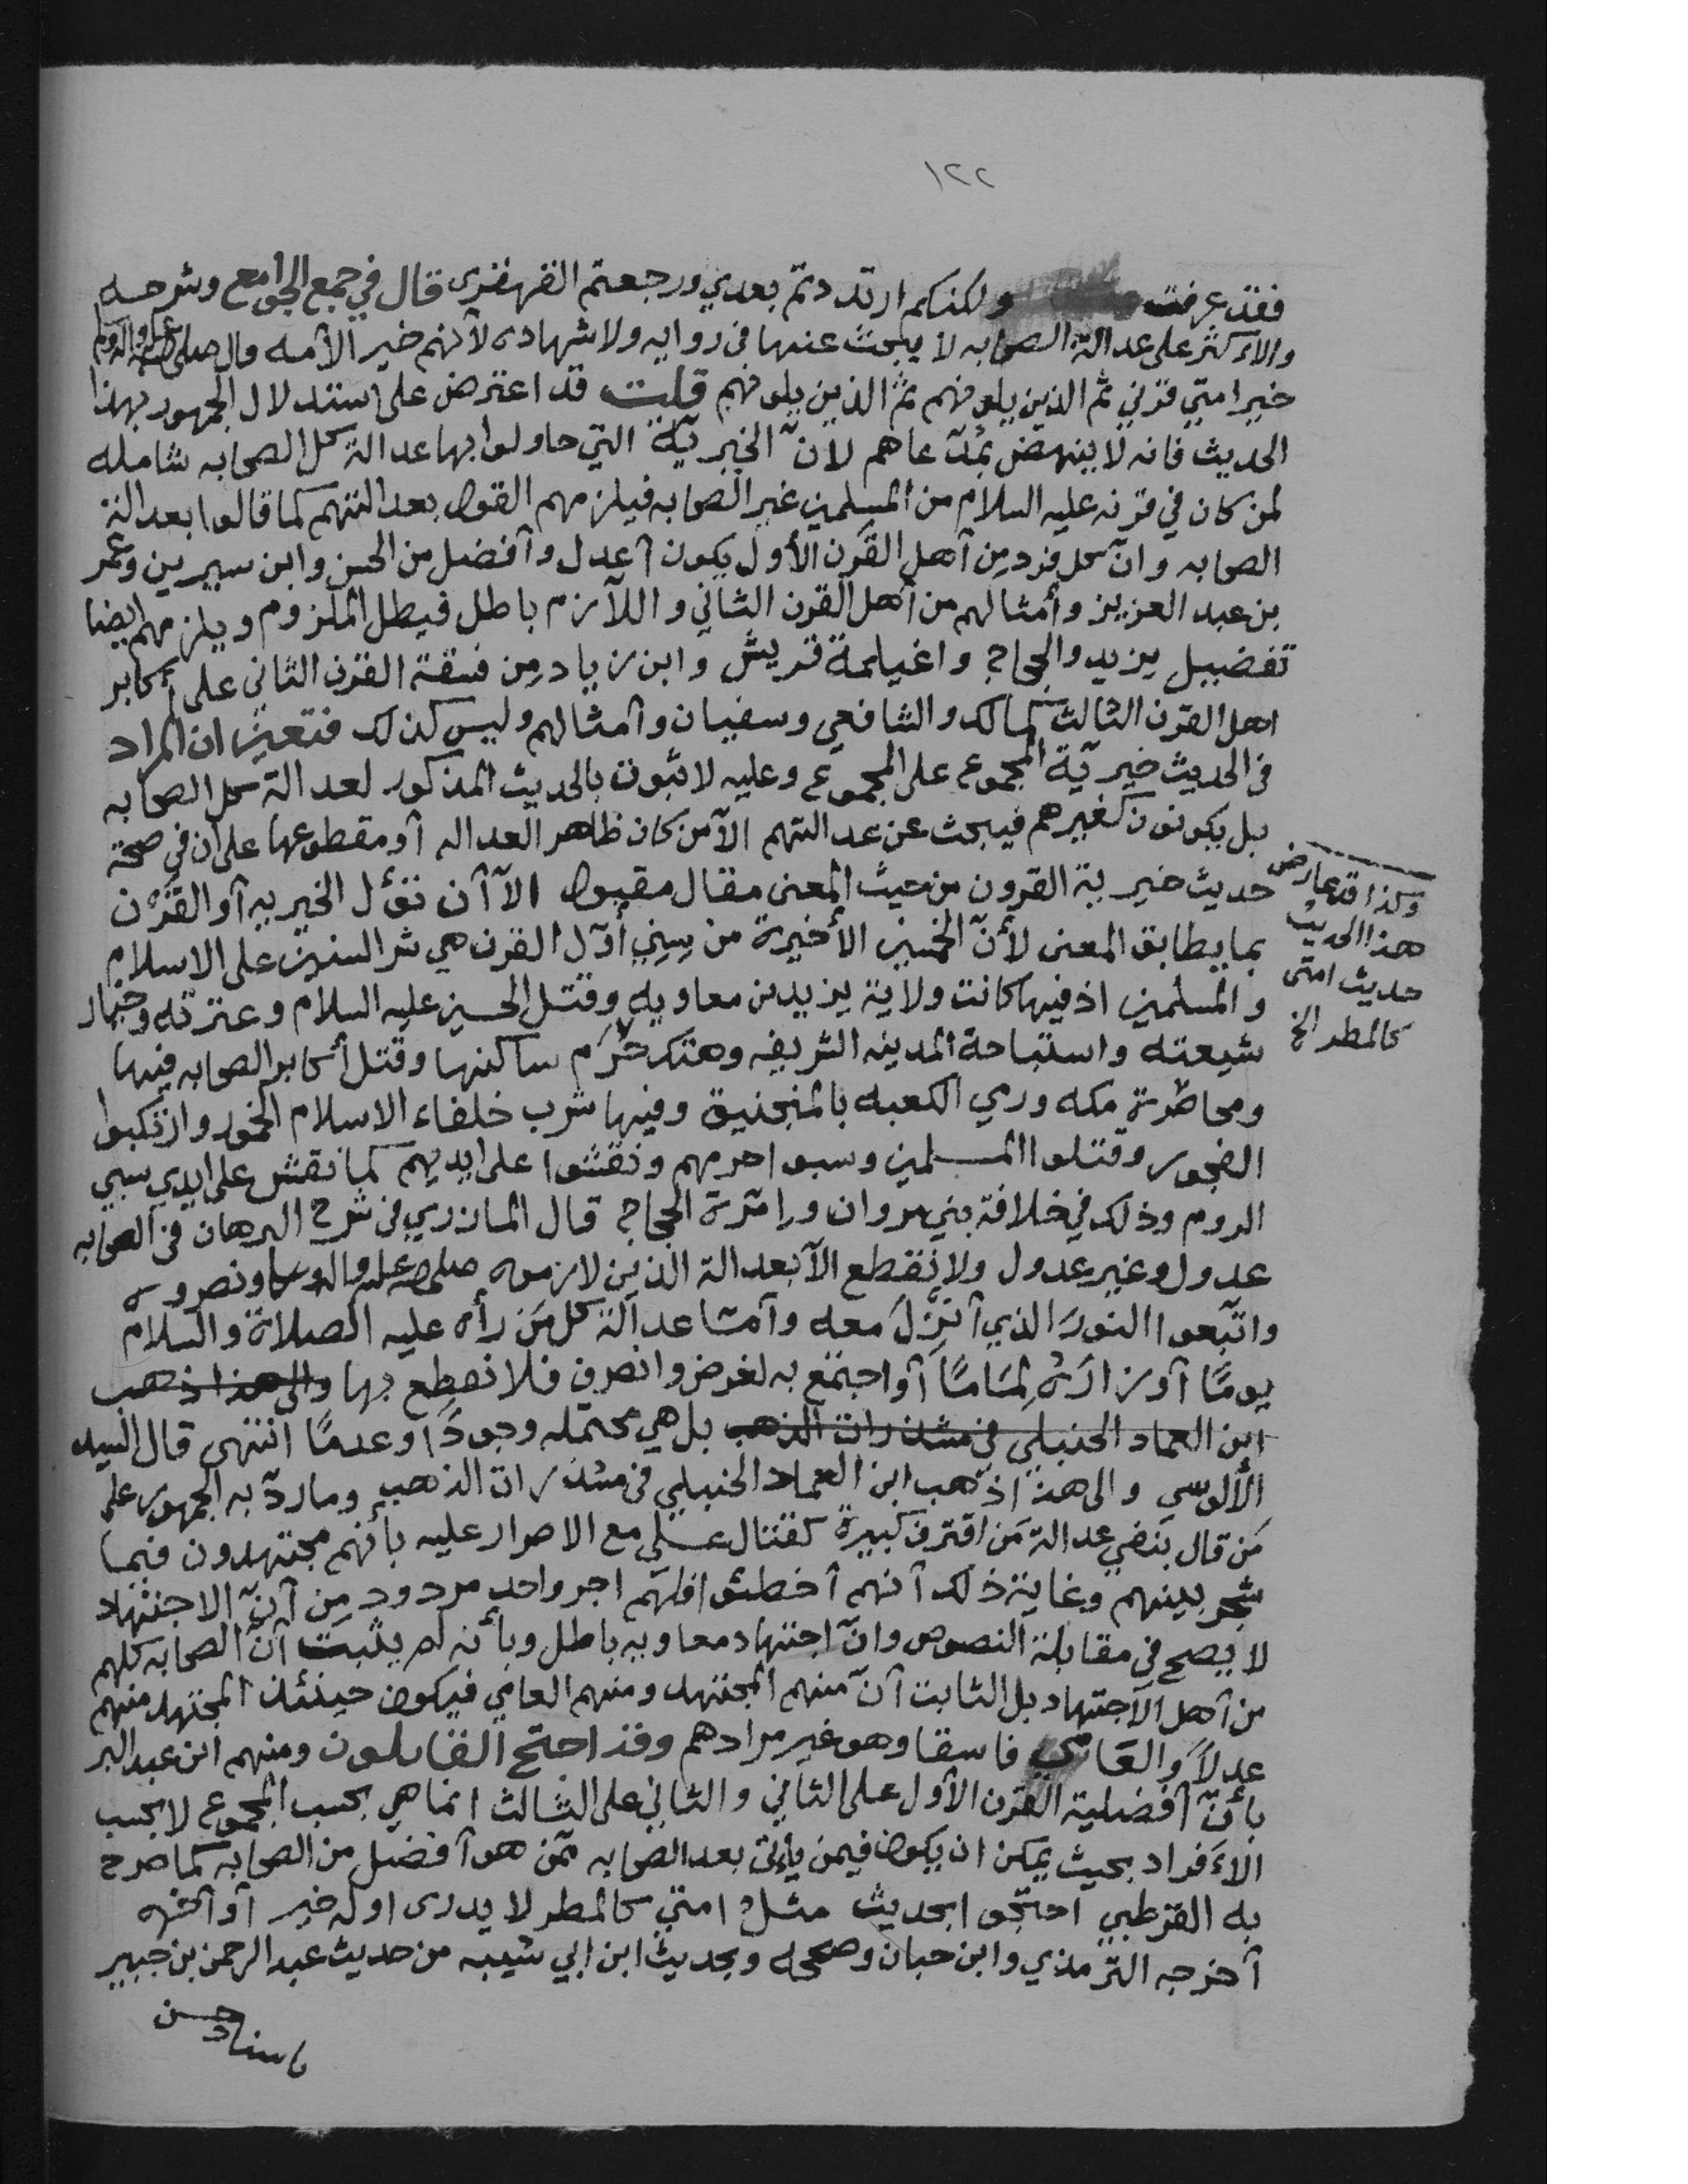 ١٢٢
فقد عرفت ولكنكم ارتددتم بعدي ورجعتم القهقرى قال في جمع الجوامع وشرحه
والأكثر على عدالة الصحابه لا يبحث عنها في روايه ولا شهاده لأنهم خير الأمه قال صلى الله عليه وآله وسلم
خير امتي قرني ثم الذين يلونهم ثم الذين يلونهم قلت قد اعترض على استدلال الجمهور بهذا
الحديث فانه لا ينهض بمدّعاهم لأنّ الخيريّة التي حاولوا بها عدالة كل الصحابه شامله
لمن كان في قرنه عليه السلام من المسلمين غير الصحابه فيلزمهم القول بعدالتهم كما قالوا بعدالة
الصحابه وانّ كل فرد مِن أهل القرن الأول يكون أعدل وأفضل من الحسن وابن سيرين وعمر
بن عبد العزيز وأمثالهم من أهل القرن الثاني واللآزم باطل فبطل الملزوم ويلزمهم ايضا
تفضيل يزيد والحجاج واغيلمة قريش وابن زياد مِن فسقة القرن الثاني على أكابر
اهل القرن الثالث كمالك والشافعي وسفيان وأمثالهم وليس كذلك فتعيّن ان المراد
في الحديث خيريّة المجموع على المجموع وعليه لا ثبوت بالحديث المذكور لعدالة كل الصحابه
بل يكونون كغيرهم فيبحث عن عدالتهم الاّ من كان ظاهر العداله أو مقطوعها على ان في صحة
حديث خيرية القرون من حيث المعنى مقال مقبول الاّ أن نؤل الخيريه أو القَرْن
وكذا قد عارض
هذا الحديث
حديث امتى
كالمطر الخ
بما يطابق المعنى لأنّ الخمسين الأخيرة من سِنِي أوّل القرن هي شر السنين على الاسلام
والمسلمين اذ فيها كانت ولاية يزيد بن معاويه وقتل الحسين عليه السلام وعترته وخيار
شيعته واستباحة المدينه الشريفه وهتك حُرَم ساكنها وقتل أكابر الصحابه فيها
ومحاصرة مكه ورمي الكعبه بالمنجنيق وفيها شرب خلفاء الاسلام الخمور وارتكبوا
الفجور وقتلوا المسلمين وسبوا حرمهم ونقشوا على ايديهم كما نقش على ايدي سبي
الروم وذلك في خلافة بني مروان وإمرة الحجاج قال المازري في شرح البرهان في الصحابه
عدول وغير عدول ولا نقطع الاّ بعدالة الذين لازموه صلى الله عليه وآله وسلم ونصروه
واتّبعوا النورَ الذي أُنزلَ معه وأمّا عدالة كل مَن رأه عليه الصلاة والسلام
يومًا أو زارَهُ لِمَامًا أو اجتمع به لغرض وانصرف فلا نقطع بها والى هذا ذهب
ابن العماد الحنبلي في شذرات الذهب بل هي محتمله وجودًا وعدمًا انتهى قال السيد
الألوسي والى هذا ذهب ابن العماد الحنبلي في شذرات الذهب وما ردّ به الجمهور على
مَن قال بنفي عدالة مَن اقترف كبيرة كقتال عــلي مع الاصرار عليه بأنهم مجتهدون فيما
شجر بينهم وغاية ذلك أنهم أخطئوا فلهم اجر واحد مردود مِن أنّ الاجتهاد
لا يصح في مقابلة النصوص وانّ اجتهاد معاويه باطل وبأنه لم يثبت أنّ الصحابه كلهم
من أهل الاجتهاد بل الثابت أنّ منهم المجتهد ومنهم العامي فيكون حينئذ المجتهد منهم
عدلاً والعَامي فاسقا وهو غير مرادهم وقد احتج القائلون ومنهم ابن عبد البر
بأنّ أفضلية القرن الأول على الثاني والثاني على الثالث انما هي بحسب المجموع لا بحسب
الأفراد بحيث يمكن ان يكون فيمن يأتي بعد الصحابه مَن هو أفضل من الصحابه كما صرح
به القرطبي احتجوا بحديث مثل امتي كالمطر لا يدرى اوله خير أو آخره
أخرجه الترمذي وابن حبان وصححه وبحديث ابن ابي شيبه من حديث عبد الرحمن بن جبير
باسناد حسن